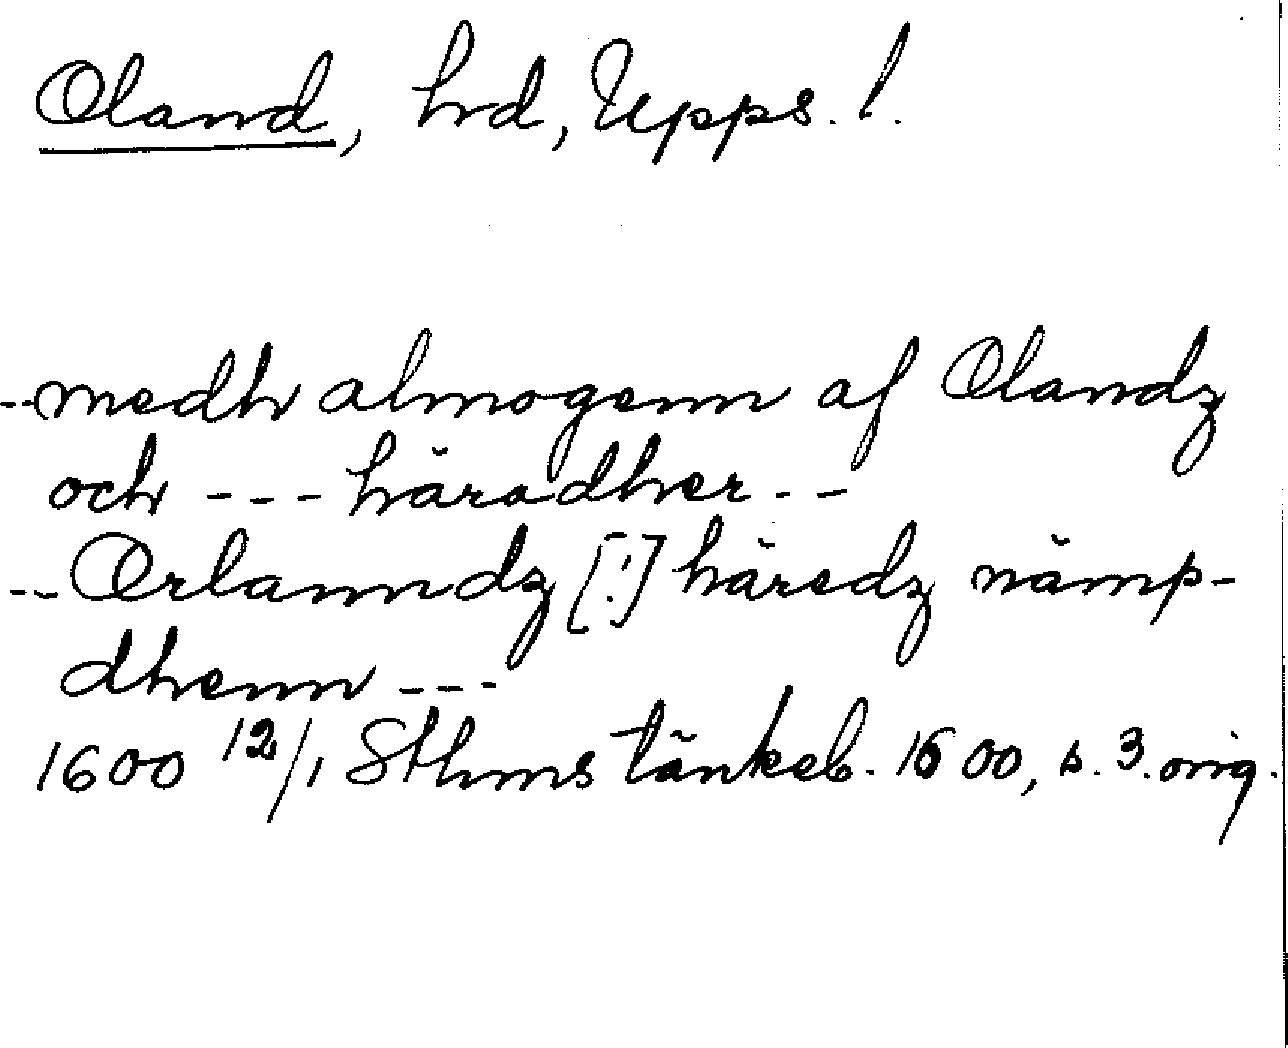 Oland, hrd, Upps. l.
-- medh almogenn af Olandz
och --- häradher --
-- Orlanndz [!] häredz nämp-
dhenn ---
1600 12/1 Sthms tänkeb. 1600, s. 3. orig.